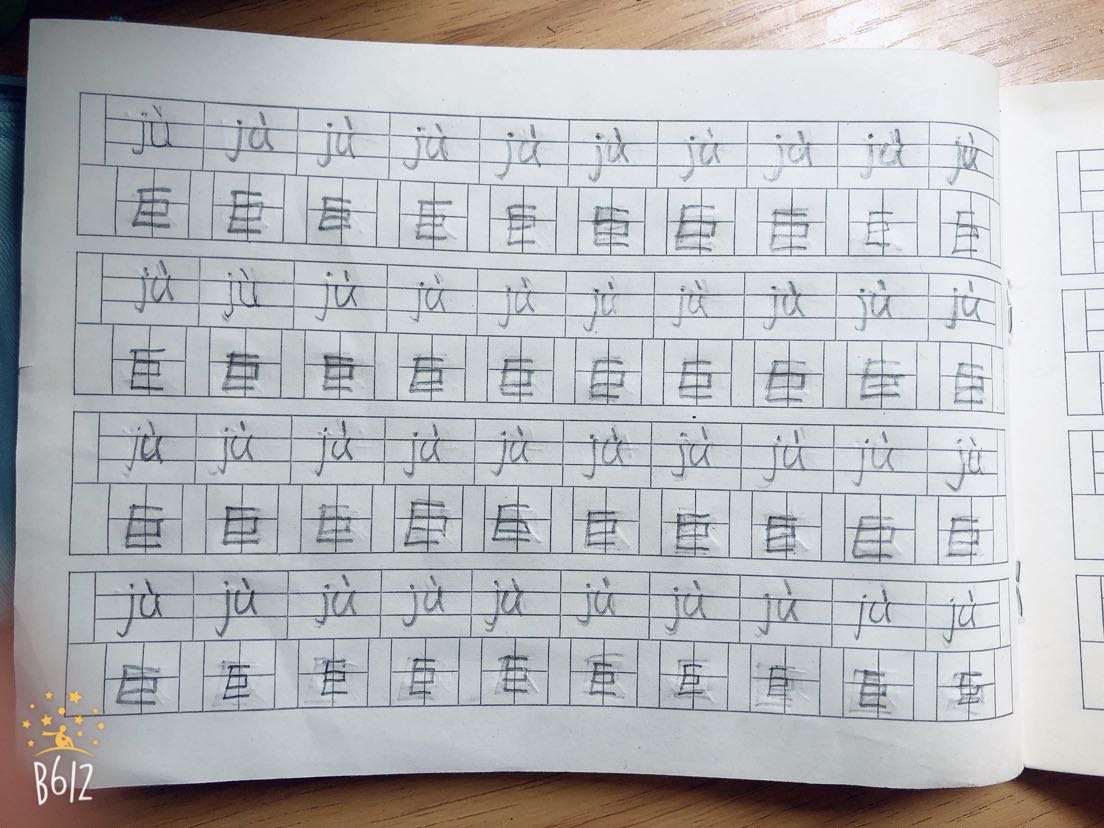 jù jù jù jù jù jù jù jù jù jù
巨 巨 巨 巨 巨 巨 巨 巨 巨 巨
jù jù jù jù jù jù jù jù jù jù
巨 巨 巨 巨 巨 巨 巨 巨 巨 巨
jù jù jù jù jù jù jù jù jù jù
巨 巨 巨 巨 巨 巨 巨 巨 巨 巨
jù jù jù jù jù jù jù jù jù jù
巨 巨 巨 巨 巨 巨 巨 巨 巨 巨
B612